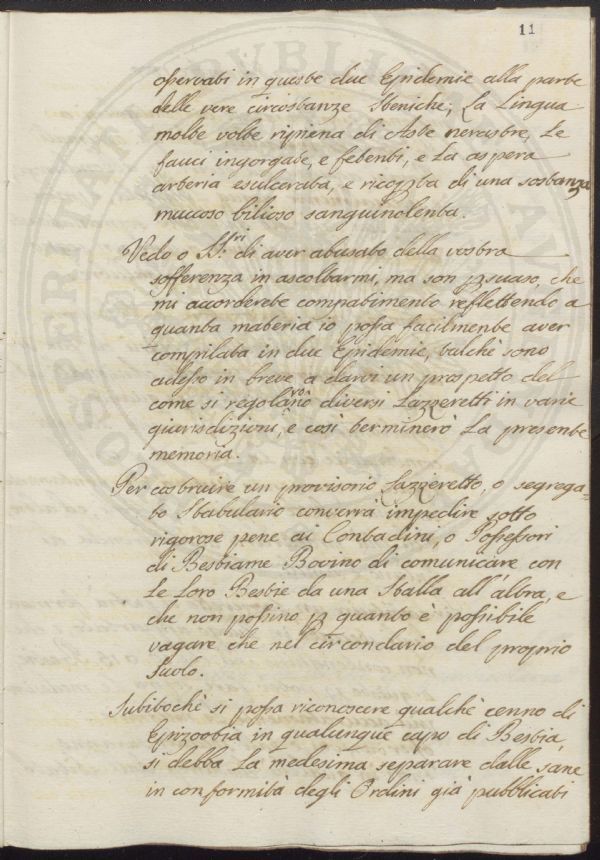 11
osservati in queste due Epidemie alla parte
delle vere circostanze Steniche; La Lingua
molte volte ripiena di Afte nerastre, Le
fauci ingorgate, e fetenti, e La aspera
arteria esulcerata, e ricopta di una sostanza
mucoso bilioso sanguinolenta.
Vedo o SS.ri di aver abusato della vostra
sofferenza in ascoltarmi, ma son psuaso, che
mi accorderete compatimento reflettendo a
quanta materia io possa facilmente aver
compilata in due Epidemie, talchè sono
adesso in breve a darvi un prospetto del
come si regolarono diversi Lazzeretti in varie
giurisdizioni, e così terminerò La presente
memoria.
Per costruire un provisorio Lazzeretto, o segrega=
to Stabulario converrà impedire sotto
rigorose pene ai Contadini, o Possessori
di Bestiame Bovino di comunicare con
Le Loro Bestie da una Stalla all'altra, e
che non possino p quanto è possibile
vagare che nel circondario del proprio
Suolo.
Subitochè si possa riconoscere qualchè cenno di
Epizootia in qualunque capo di Bestia,
si debba La medesima separare dalle sane
in conformità degli Ordini già pubblicati